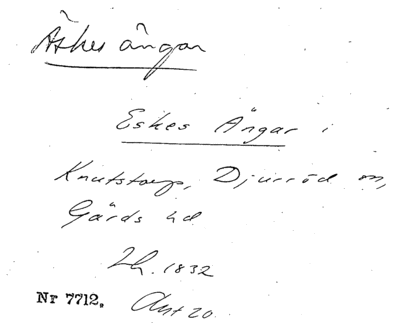 Äskes ängar
Eskes Ängar i
Knutstorp, Djurröd sn,
Gärds hd
Lh. 1832
Nr 7712. Akt 20